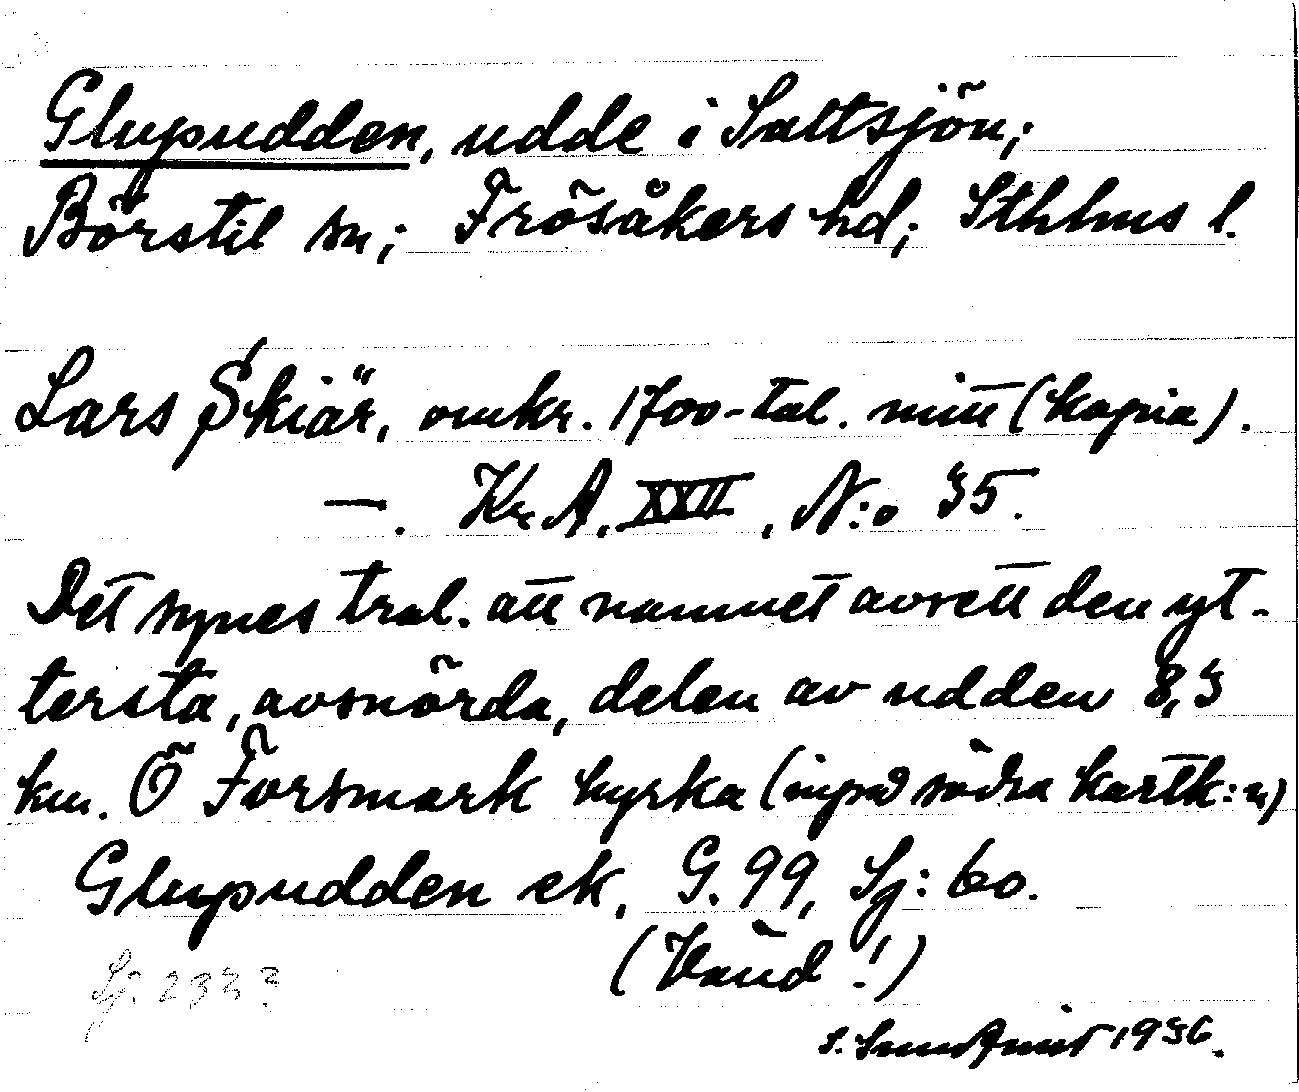 Glupudden, udde i Saltsjön;
Börstil sn; Frösåkers hd; Sthlms l.
Lars Skiär, omkr. 1700-tal. mitt (kopia).
—. Kr. A. XXII, N:o 35.
Det synes trol. att namnet avsett den yt-
tersta, avsnörda, delen av udden 8,3
km. Ö Forsmark kyrka (inpå södra kartk:n)
Glupudden ek. G. 99, Sj: 60.
(Vänd!)
Sj. 233?
S. Sundqvist 1936.